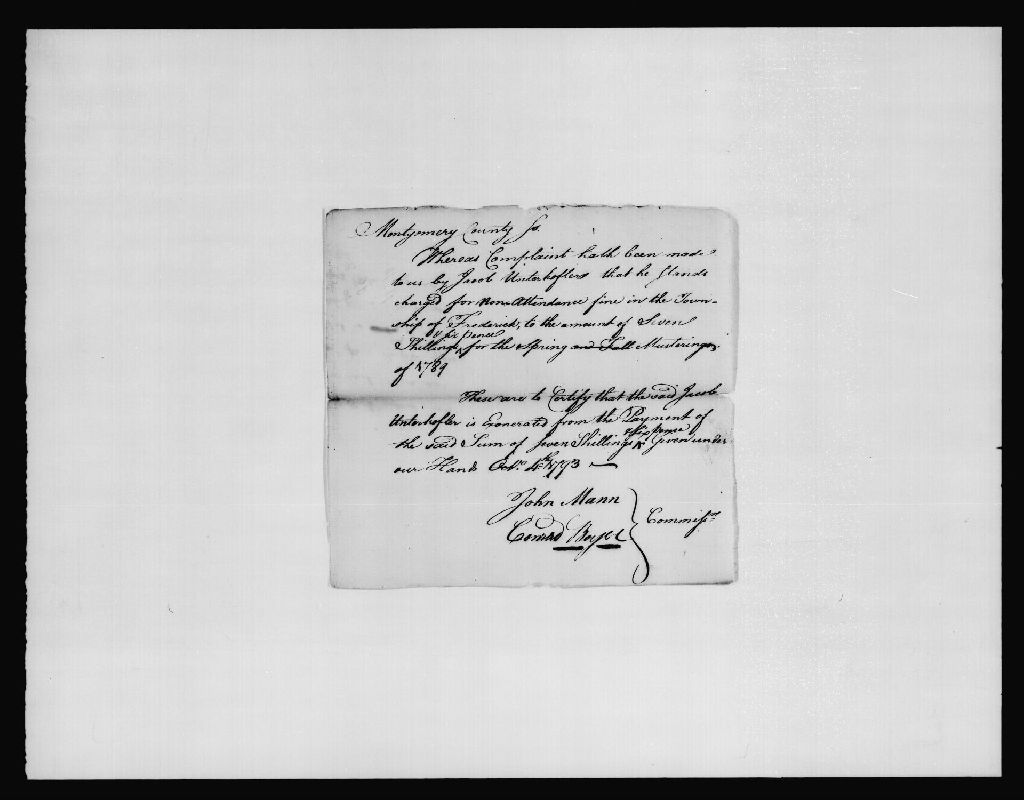 Montgomery County Ss.
Whereas Complaint hath been made
to us by Jacob Underkofler that he stands
charged for non-Attendance fine in the Town-
ship of Frederick, to the amount of Seven
& six pence
Shillings ^ for the Spring and Fall Musterings
of 1789
These are to Certify that the said Jacob
Unterkofler is Exonerated from the Payment of
& six pence
the said Sum of Seven Shillings ^ Given under
our Hands Octr. 4th 1793
John Mann
Conrad Boyer
Commissrs